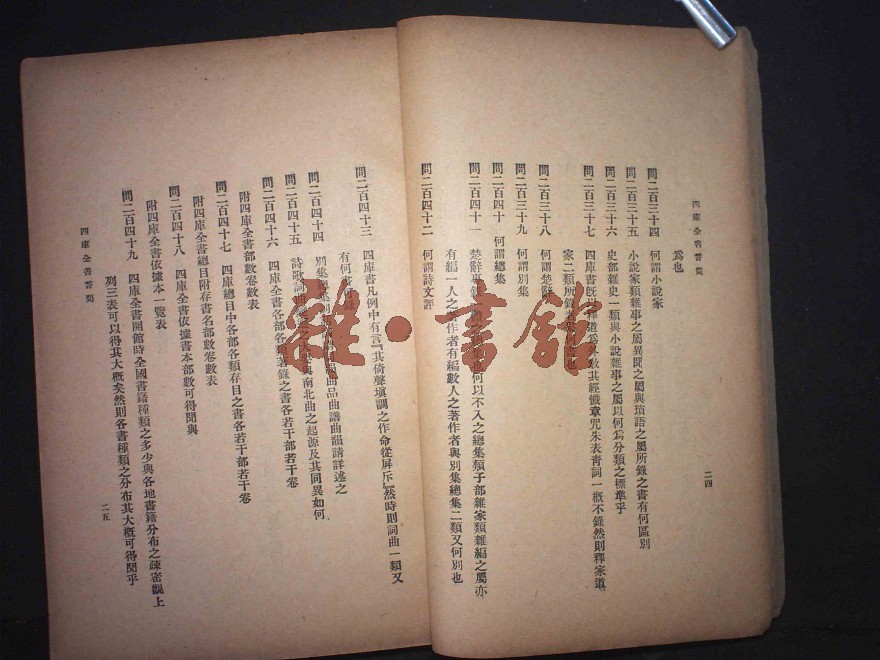 四庫全書答問
二四
爲也
問二百三十四 何謂小說家
問二百三十五 小說家類雜事之屬異聞之屬與瑣語之屬所錄之書有何區別
問二百三十六 史部雜史一類與小說雜事之屬以何爲分類之標準乎
問二百三十七 四庫書旣以釋道爲外致其經懺章咒朱表青詞一概不錄然則釋家道
家二類所錄者
問二百三十八 何謂楚
問二百三十九 何謂別集
問二百四十 何謂總集
問二百四十一 楚辭 何以不入之總集類子部雜家類雜編之屬亦
有編一人之著作者有編數人之著作者與別集總集二類又何別也
問二百四十二 何謂詩文評
問二百四十三 四庫書凡例中有言『其倚聲塡調之作命從屛斥』然時則詞曲一類又
有何書
問二百四十四 別集 曲品曲譜曲韻請詳述之
問二百四十五 詩歌詞 與南北曲之起源及其同異如何
問二百四十六 四庫全書各部各類著錄之書各若干部若干卷
附四庫全書部數卷數表
問二百四十七 四庫總目中各部各類存目之書各若干部若干卷
附四庫全書總目附存書名部數卷數表
問二百四十八 四庫全書依據書本部數可得聞與
附四庫全書依據本一覽表
問二百四十九 四庫全書開館時全國書籍種類之多少與各地書籍分布之疎密觀上
列三表可以得其大概矣然則各書種類之分布其大概可得聞乎
四庫全書答問
二五
雜·書館